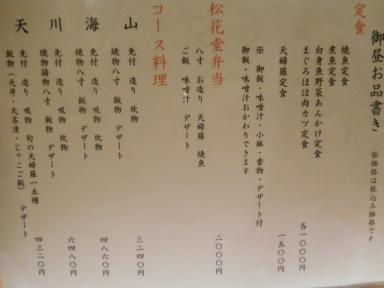 御昼お品書き
※価格は税込み価格です
定食
焼魚定食
煮魚定食
白身魚野菜あんかけ定食
まぐろほほ肉カツ定食
各一〇〇〇円
天婦羅定食
一五〇〇円
※御飯・味噌汁・小鉢・香物・デザート付
御飯・味噌汁おかわりできます
松花堂弁当
八寸 お造り 天婦羅 焼魚
ご飯 味噌汁 デザート
二〇〇〇円
コース料理
山
先付 造り 吸物 炊物
焼物八寸 飯物 デザート
三二四〇円
海
先付 造り 吸物 炊物
焼物八寸 飯物 デザート
四八六〇円
川
先付 造り 吸物 炊物
焼物揚物八寸 飯物 デザート
六四八〇円
天
先付 造り 吸物 旬の天婦羅一五種
飯物(天丼・天茶漬・じゃこご飯) デザート
四三二〇円